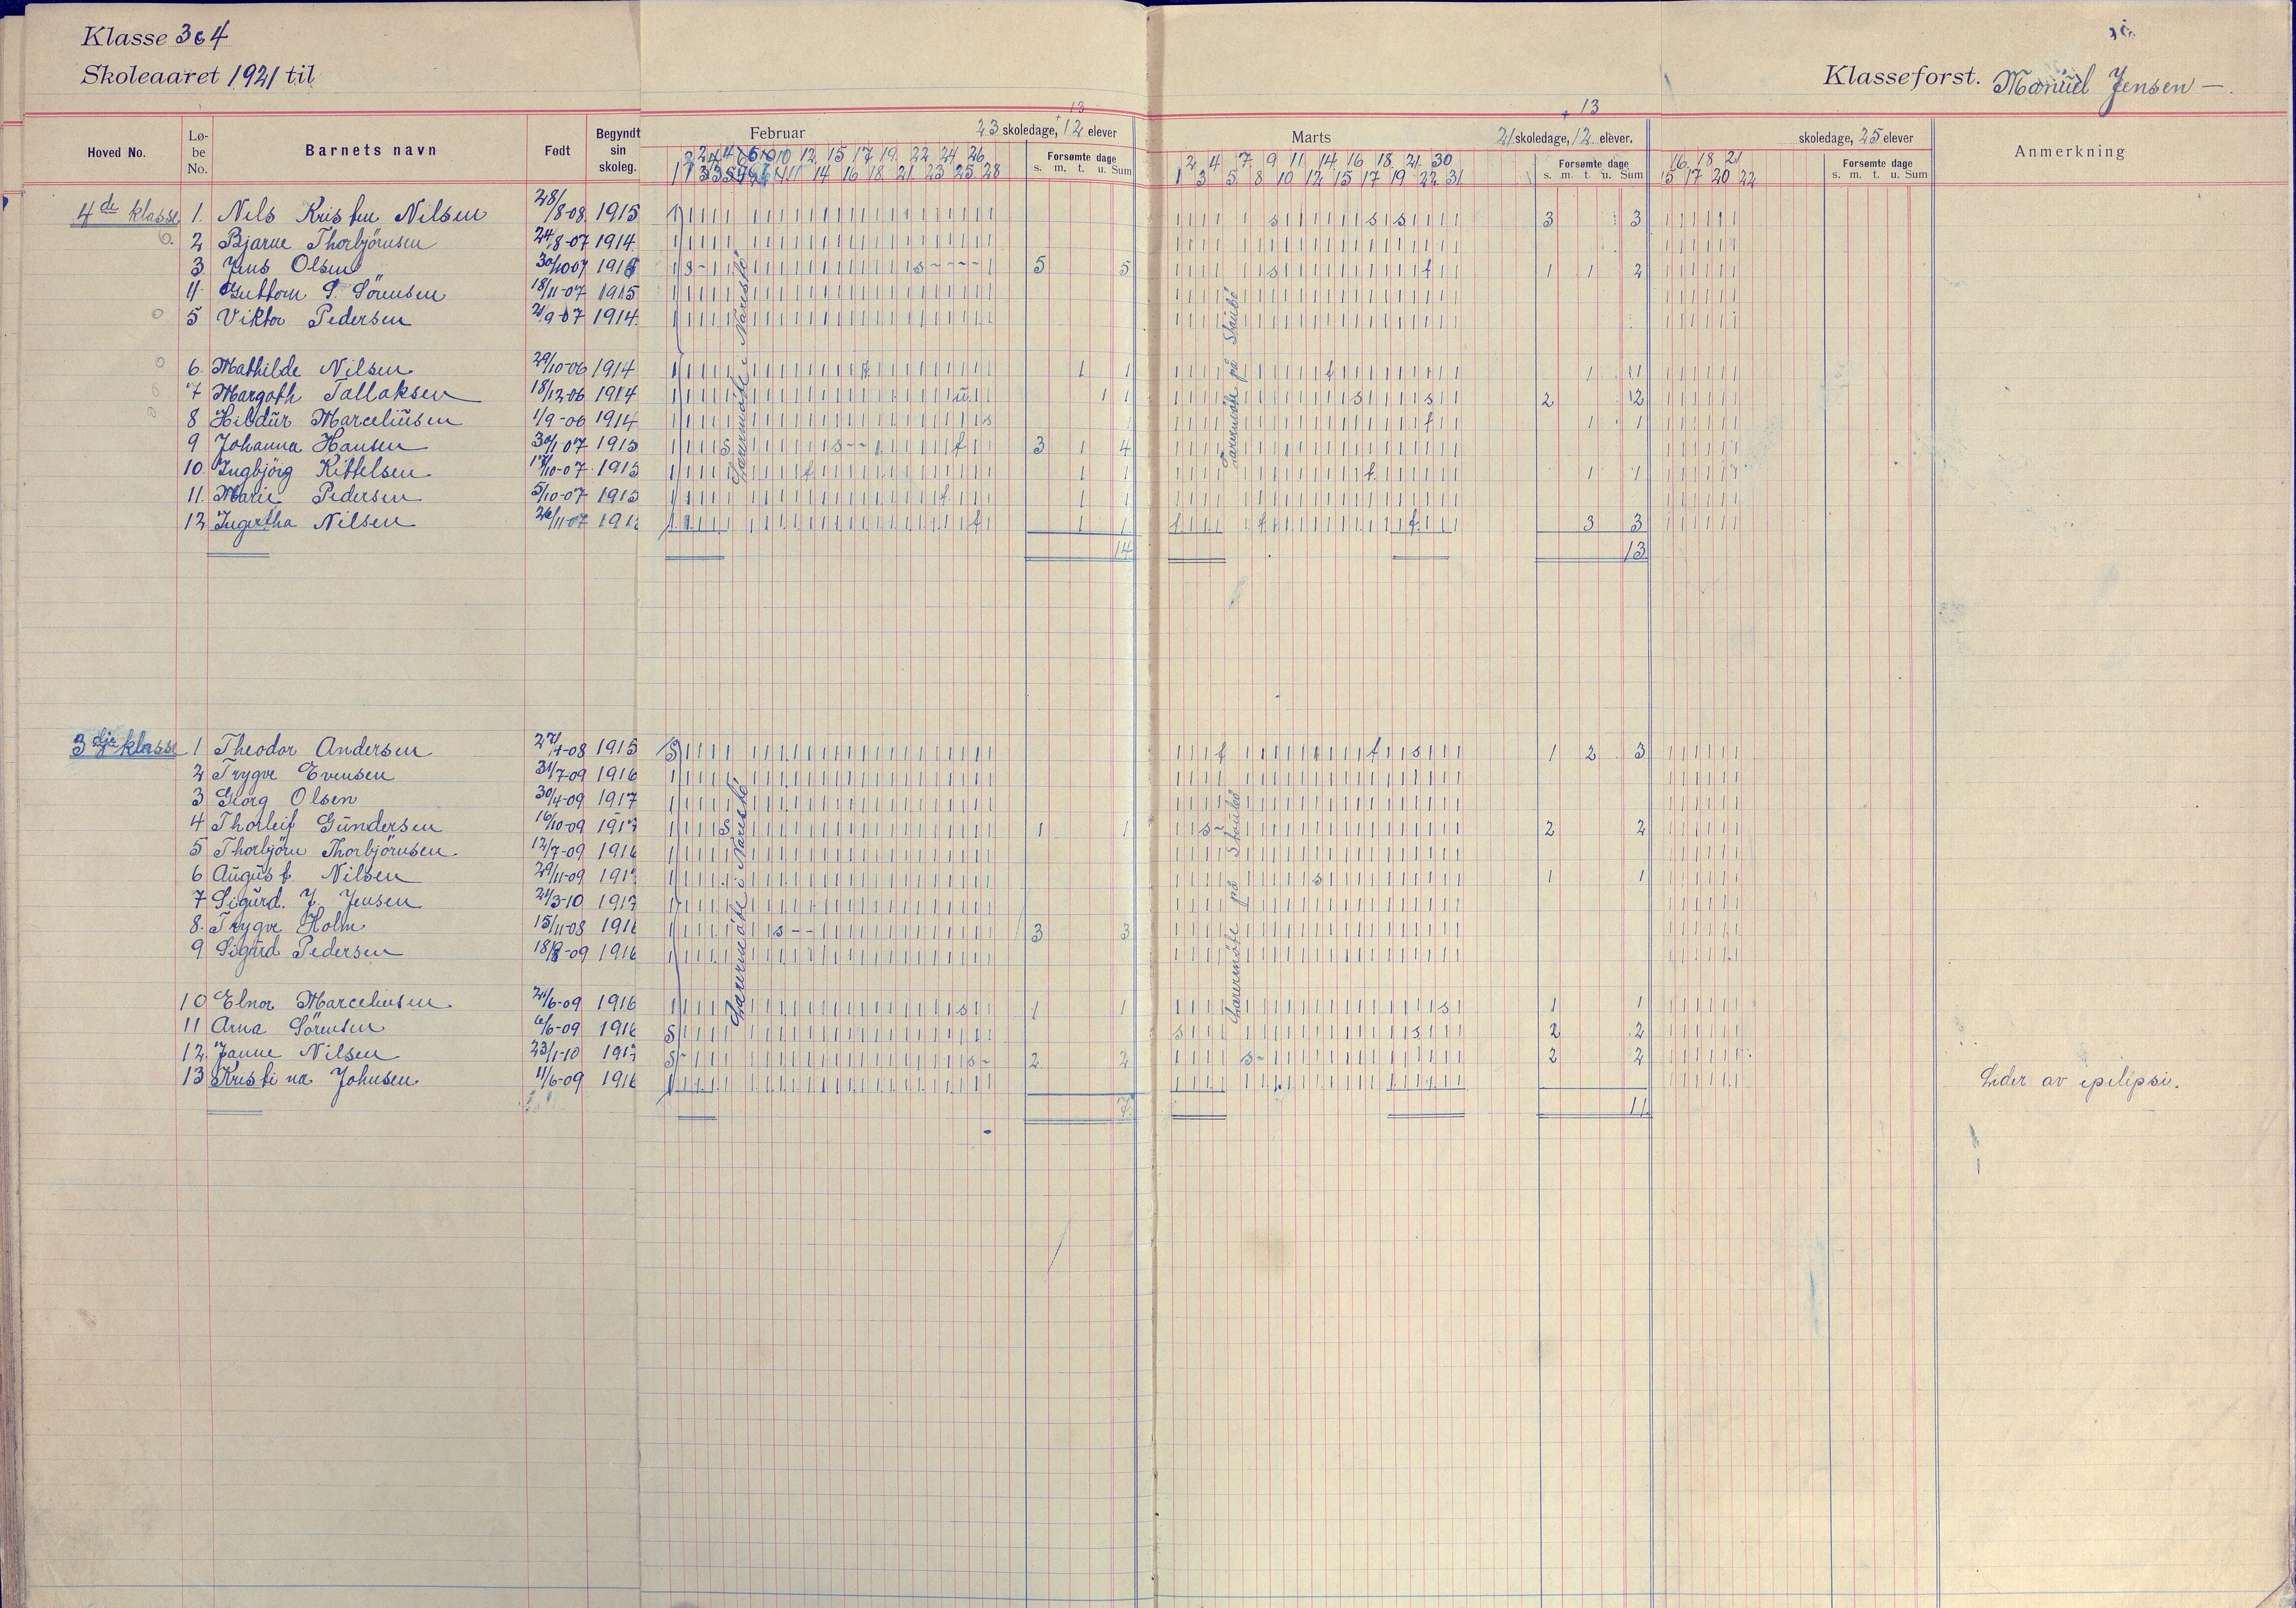 Klasse 3 o 4
Skoleaaret 1921 til
Klasseforst. Manuel Jensen —.
Hoved No. Lø-be No. Barnets navn Født Begyndt sin skoleg.
Februar 23 skoledage, 12 + 13 elever
Forsømte dage s. m. t. u. Sum
Marts 21 skoledage, 12 + 13 elever.
Forsømte dage s. m. t. u. Sum
skoledage, 25 elever
Forsømte dage s. m. t. u. Sum
Anmerkning
10 12 15 17 19 22 24 26
11 14 16 18 21 23 25 28
2 4 7 9 11 14 16 18 21 30
1 3 5 8 10 12 15 17 19 22 31
16 18 21
15 17 20 22
4de klasse 1. Nils Kristen Nilsen 28/8-08 1915 3 3
2 Bjarne Thorbjörnsen 24/8-07 1914
3 Jens Olsen 30/10-07 5 5 1 1 2
4 Guttorm S. Sörensen 18/11-07 1915
5 Viktor Pedersen 21/9-07 1914
6. Mathilde Nilsen 29/10-06 1914 1 1 1 1
7 Margoth Tallaksen 18/12-06 1914 1 1 2 2
8 Hildur Marceliusen 1/9-06 1914 1 1
9 Johanna Hansen 30/1-07 1915 3 1 4
10 Ingbjörg Kittelsen 17/10-07 1915 1 1 1 1
11. Marie Pedersen 5/10-07 1915 1 1
12 Ingertha Nilsen 26/11-07 1 1 3 3
14 13
Lærermöte i Næresbö
Lærermöte på Staubö
3dje klasse 1 Theodor Andersen 27/4-08 1915 1 2 3
2 Trygve Evensen 31/7-09 1916
3 Georg Olsen 30/4-09 1917
4 Thorleif Gundersen 16/10-09 1917 1 1 2 2
5 Thorbjörn Thorbjörnsen 12/7-09 1916
6 August Nilsen 29/11-09 1917 1 1
7 Sigurd. J. Jensen 21/3-10 1917
8. Trygve Holm 15/11-08 1916 3 3
9 Sigurd Pedersen 18/8-09 1916
10 Elnor Marceliusen 21/6-09 1916 1 1 1 1
11 Arna Sörensen 6/6-09 1916 2 2
12. Janne Nilsen 23/1-10 1917 2 2 2 2
13 Kristina Johnsen 11/6-09 1916 Lider av epilipsi.
7 11
Lærermöte i Næresbö
Lærermöte på Staubö